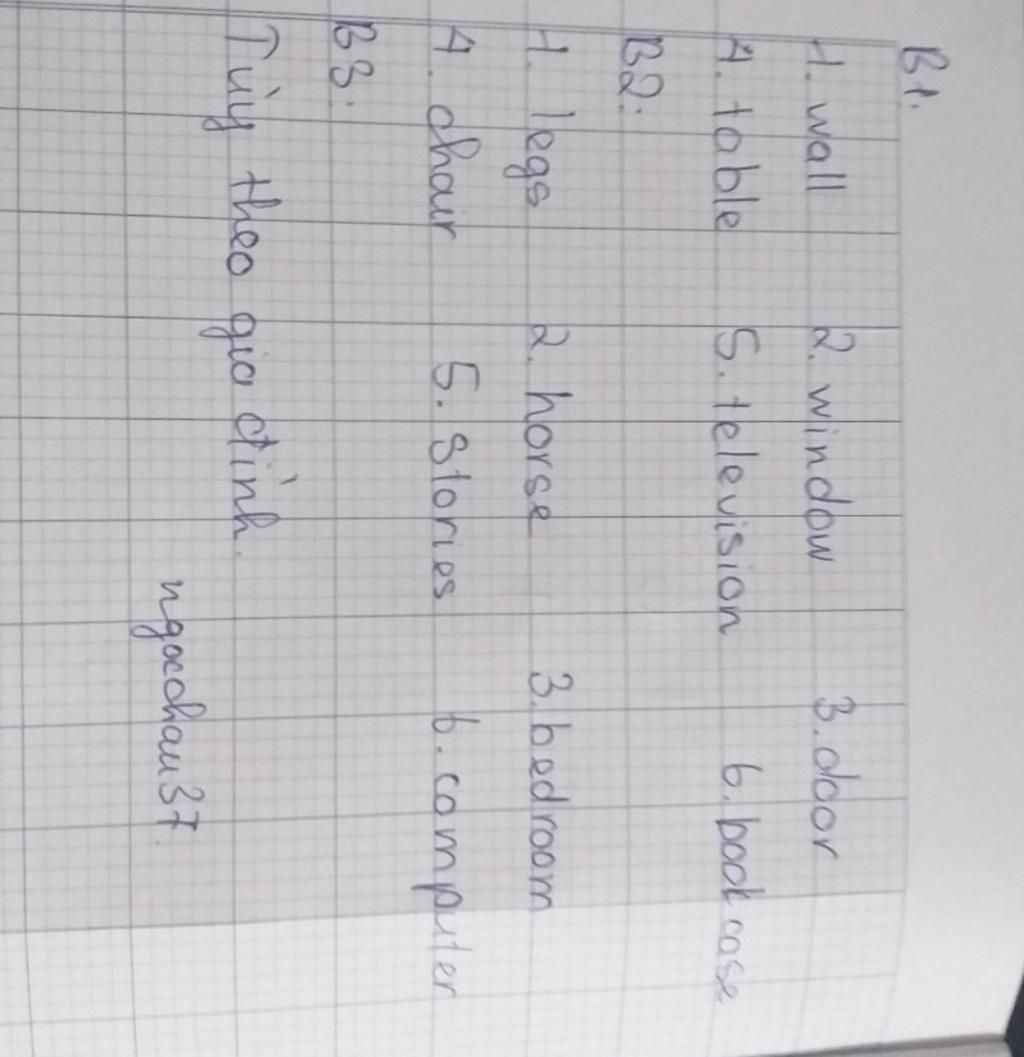 B1.
1. wall 2. window 3. door
4. table 5. television 6. book case
B2:
1. legs 2. horse 3. bedroom
4. chair 5. Stories 6. computer
B3:
Tùy theo gia đình.
ngocchau37.